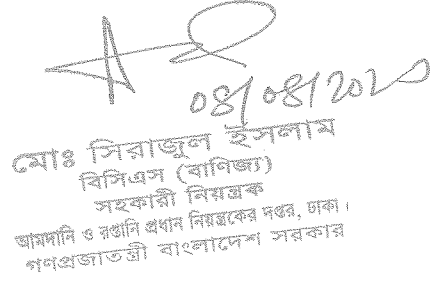 ০৪/০৪/২০২০
মোঃ সিরাজুল ইসলাম
বিসিএস (বাণিজ্য)
সহকারী নিয়ন্ত্রক
আমদানি ও রপ্তানি প্রধান নিয়ন্ত্রকের দপ্তর, ঢাকা।
গণপ্রজাতন্ত্রী বাংলাদেশ সরকার